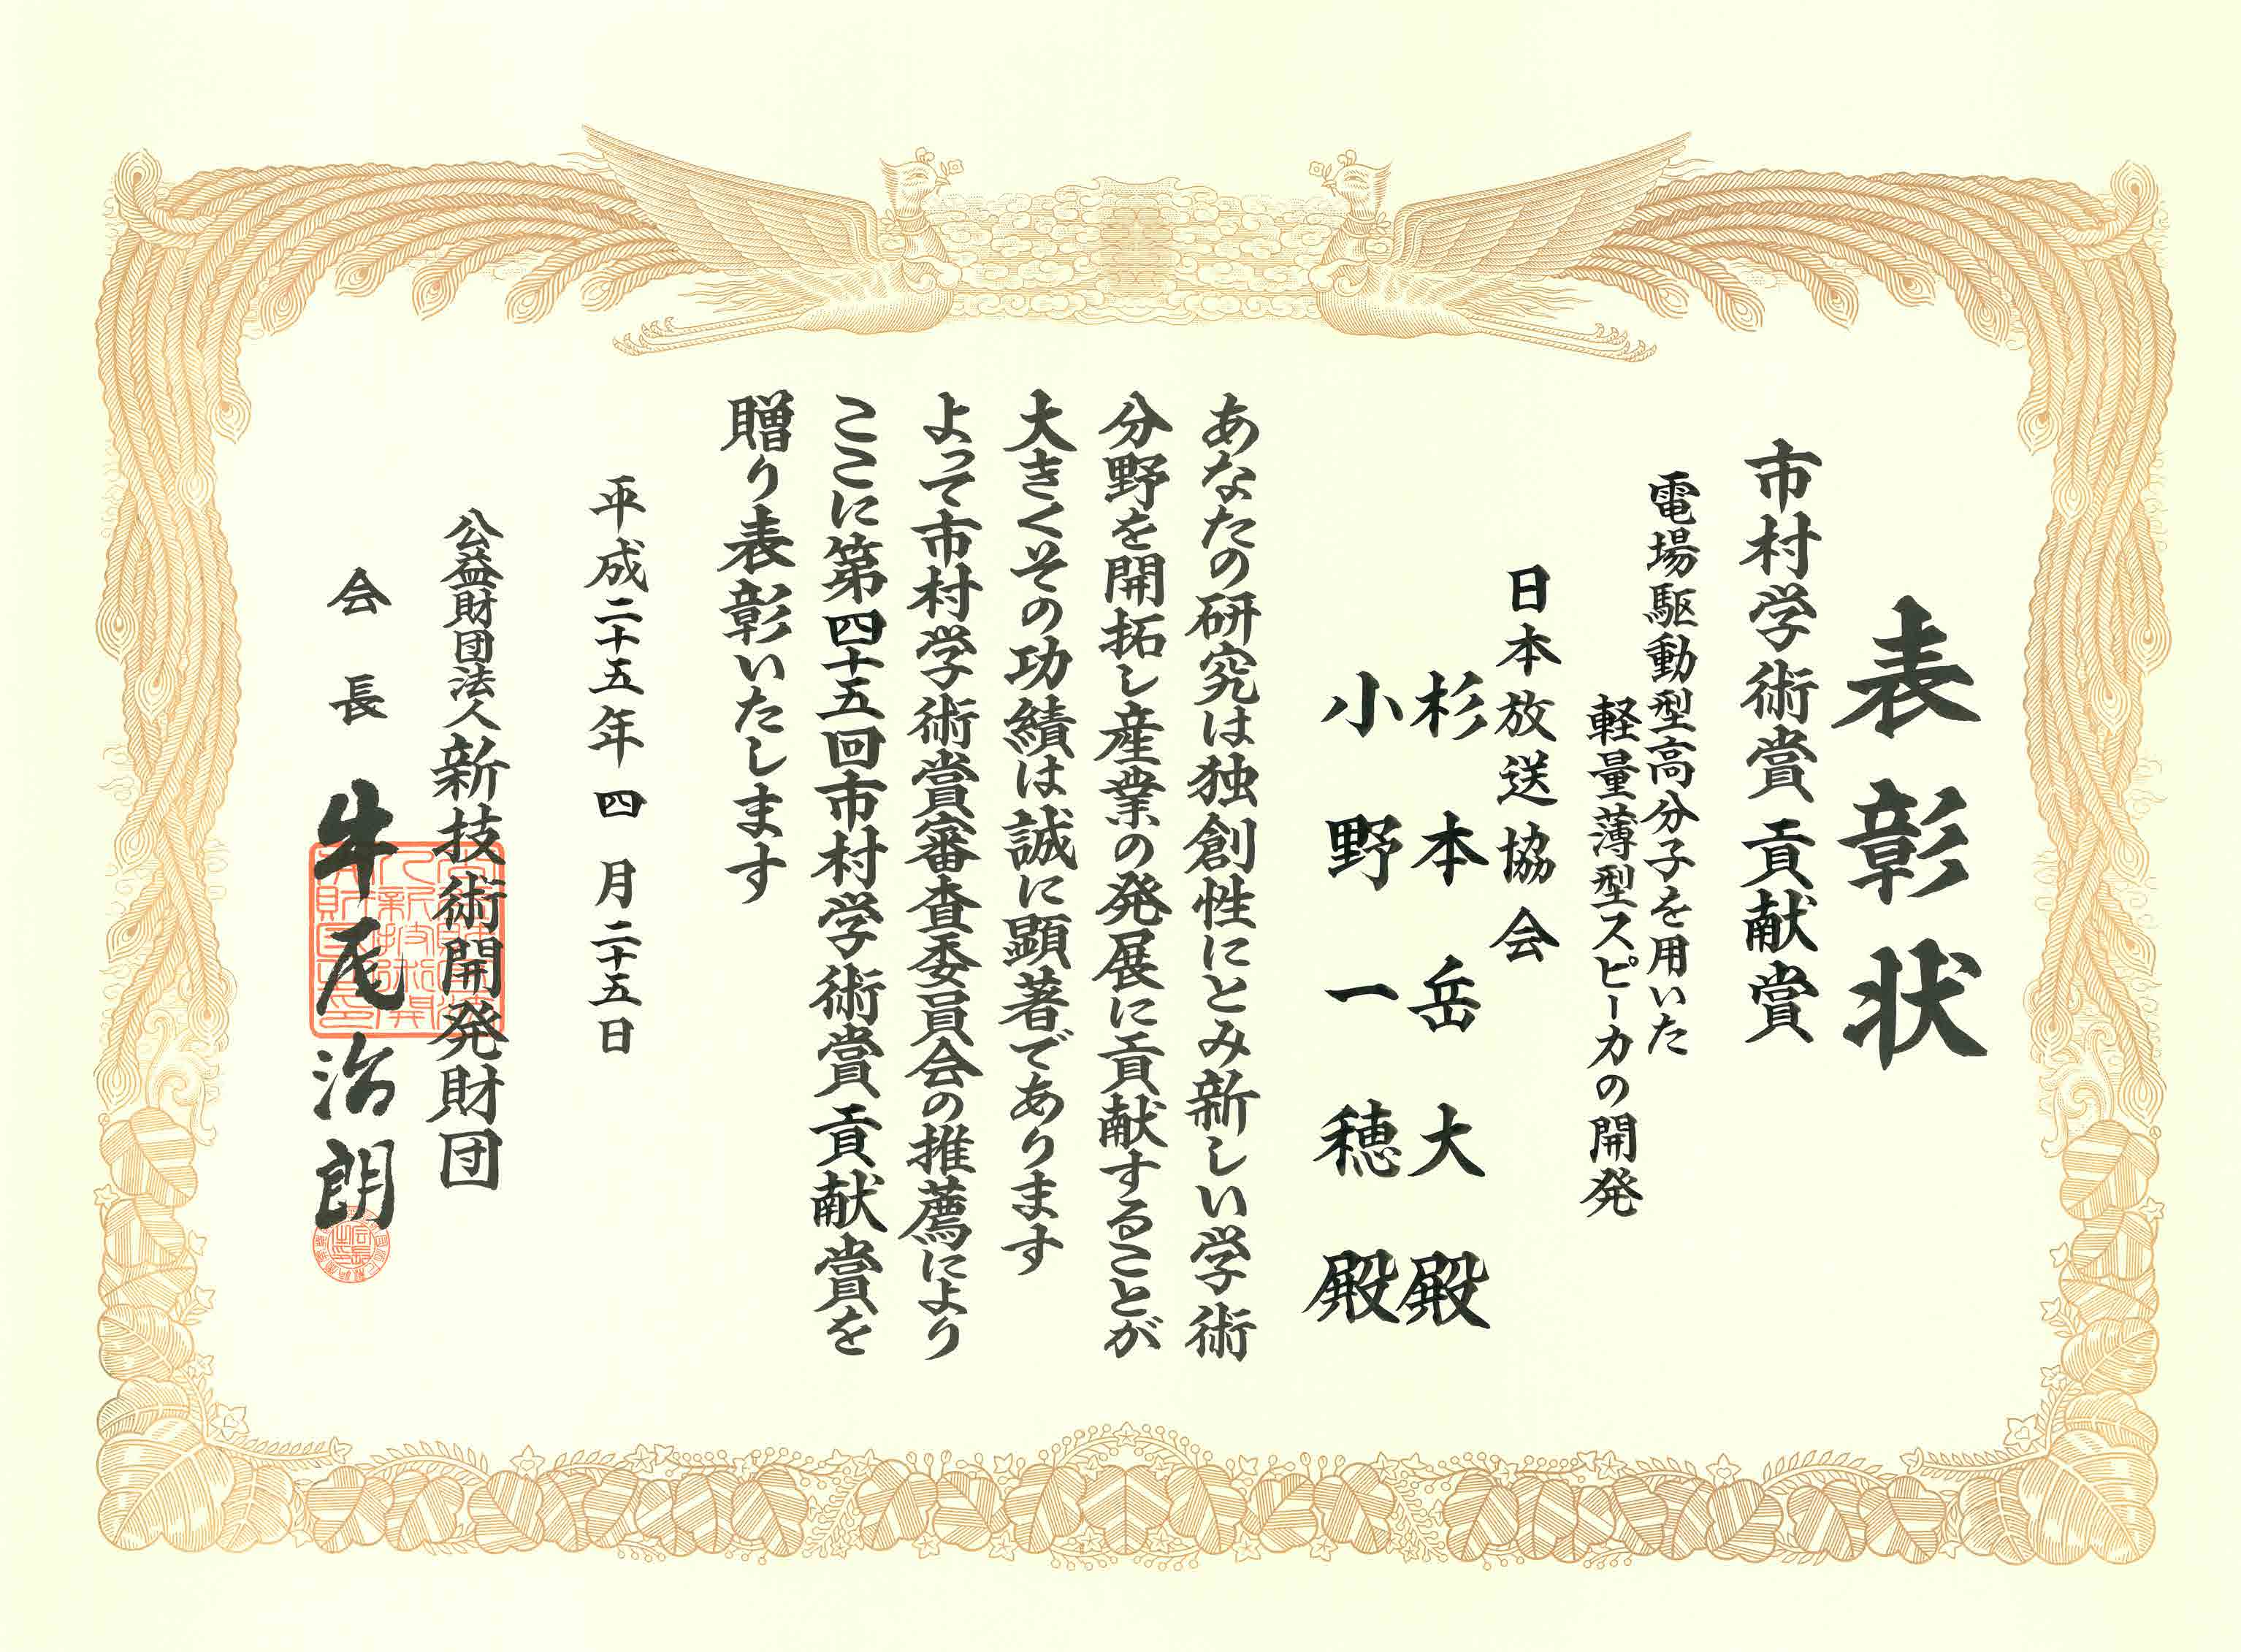 表彰状
市村学術賞 貢献賞
電場駆動型高分子を用いた
軽量薄型スピーカの開発
日本放送協会
杉本岳大殿
小野一穂殿
あなたの研究は独創性にとみ新しい学術
分野を開拓し産業の発展に貢献することが
大きくその功績は誠に顕著であります
よって市村学術賞審査委員会の推薦により
ここに第四十五回市村学術賞貢献賞を
贈り表彰いたします
平成二十五年四月二十五日
公益財団法人新技術開発財団
会長 牛尾治朗